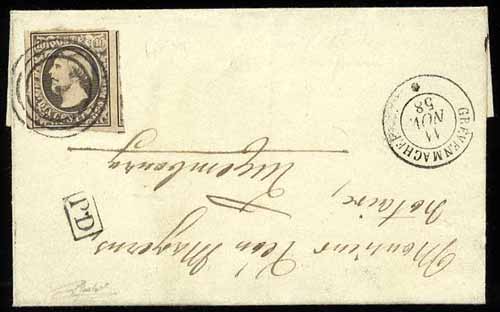 GREVENMACHER
11
NOV.
58
P.D
Monsieur Jean Majerus
Notaire,
à
Luxembourg